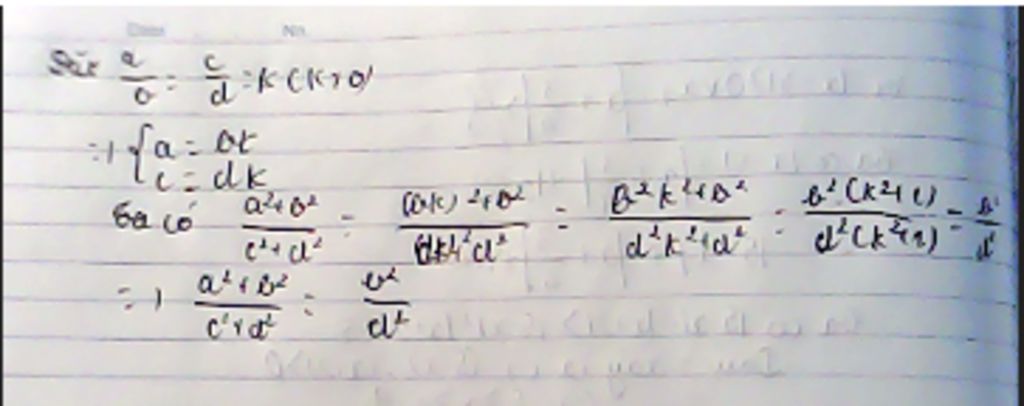 Date No.
Đặt a/b = c/d = k (k>0)
=> { a = bk
c = dk
Ta có (a²+b²)/(c²+d²) = ((bk)²+b²)/((dk)²+d²) = (b²k²+b²)/(d²k²+d²) = (b²(k²+1))/(d²(k²+1)) = b²/d²
=> (a²+b²)/(c²+d²) = b²/d²